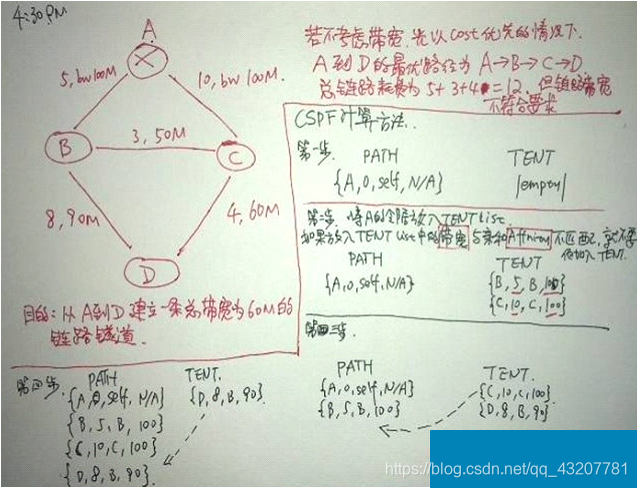 4:30PM
A
5, bw100M
10, bw 100M.
B
3, 50M
C
8, 90M
4, 60M
D
目的: 从A到D建立一条总带宽为60M的
链路隧道.
若不考虑带宽, 先以Cost优先的情况下.
A到D的最优路径为 A→B→C→D
总链路耗费为5+3+4=12, 但链路带宽
不符合要求
CSPF计算方法.
第一步. PATH TENT
{A,0,self,N/A} |empty|
第二步. 将A的邻居放入TENT List.
如果放入TENT List中的带宽与亲和Affinity不匹配, 就不要
加入TENT.
PATH TENT
{A,0,self,N/A} {B, 5, B, 100}
{C, 10, C, 100}
第三步
PATH TENT.
{A,0,self,N/A} {C,10,C,100}
{B, 5, B, 100} {D, 8, B, 90}
第四步.
PATH TENT.
{A,0,self,N/A} {D, 8, B, 90}
{B, 5, B, 100}
{C, 10, C, 100}
{D, 8, B, 90}
https://blog.csdn.net/qq_43207781